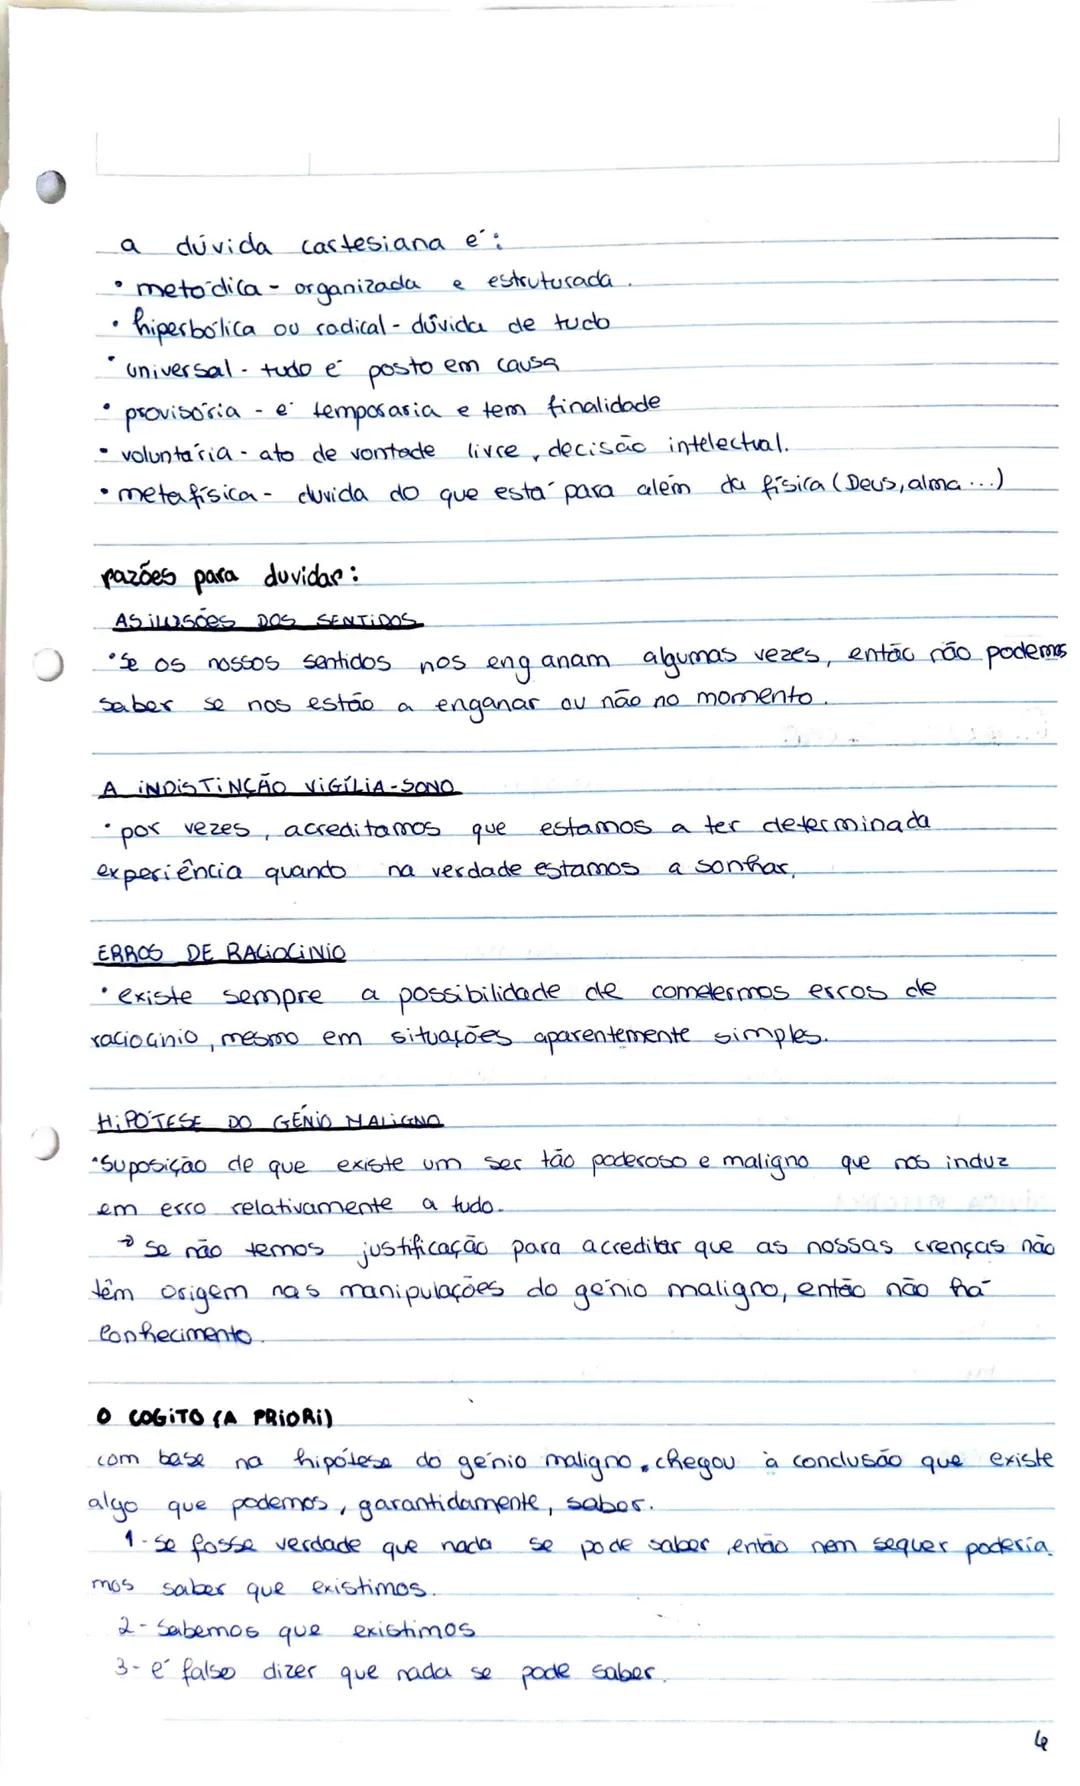 a dúvida cartesiana é:
• metódica - organizada e estruturada.
• hiperbólica ou radical - dúvida de tudo
• universal - tudo é posto em causa
• provisória - é temporaria e tem finalidade
• voluntária - ato de vontade livre, decisão intelectual.
• metafísica - duvida do que está para além da física (Deus, alma ...)
razões para duvidar:
AS ilUSÕES DOS SENTIDOS
• Se os nossos sentidos nos enganam algumas vezes, então não podemos
saber se nos estão a enganar ou não no momento.
A iNDiSTiNÇÃO ViGÍLiA-SONO
• por vezes, acreditamos que estamos a ter determinada
experiência quando na verdade estamos a sonhar.
ERROS DE RACiOCiNiO
• existe sempre a possibilidade de cometermos erros de
raciocinio, mesmo em situações aparentemente simples.
HiPÓTESE DO GÉNiO MALiGNO
• Suposição de que existe um ser tão poderoso e maligno que nos induz
em erro relativamente a tudo.
→ Se não temos justificação para acreditar que as nossas crenças não
têm origem nas manipulações do génio maligno, então não há
conhecimento.
O COGiTO (A PRiORi)
com base na hipótese do génio maligno, chegou à conclusão que existe
algo que podemos, garantidamente, saber.
1- se fosse verdade que nada se pode saber, então nem sequer poderia
mos saber que existimos.
2- Sabemos que existimos
3- é falso dizer que nada se pode saber.
4